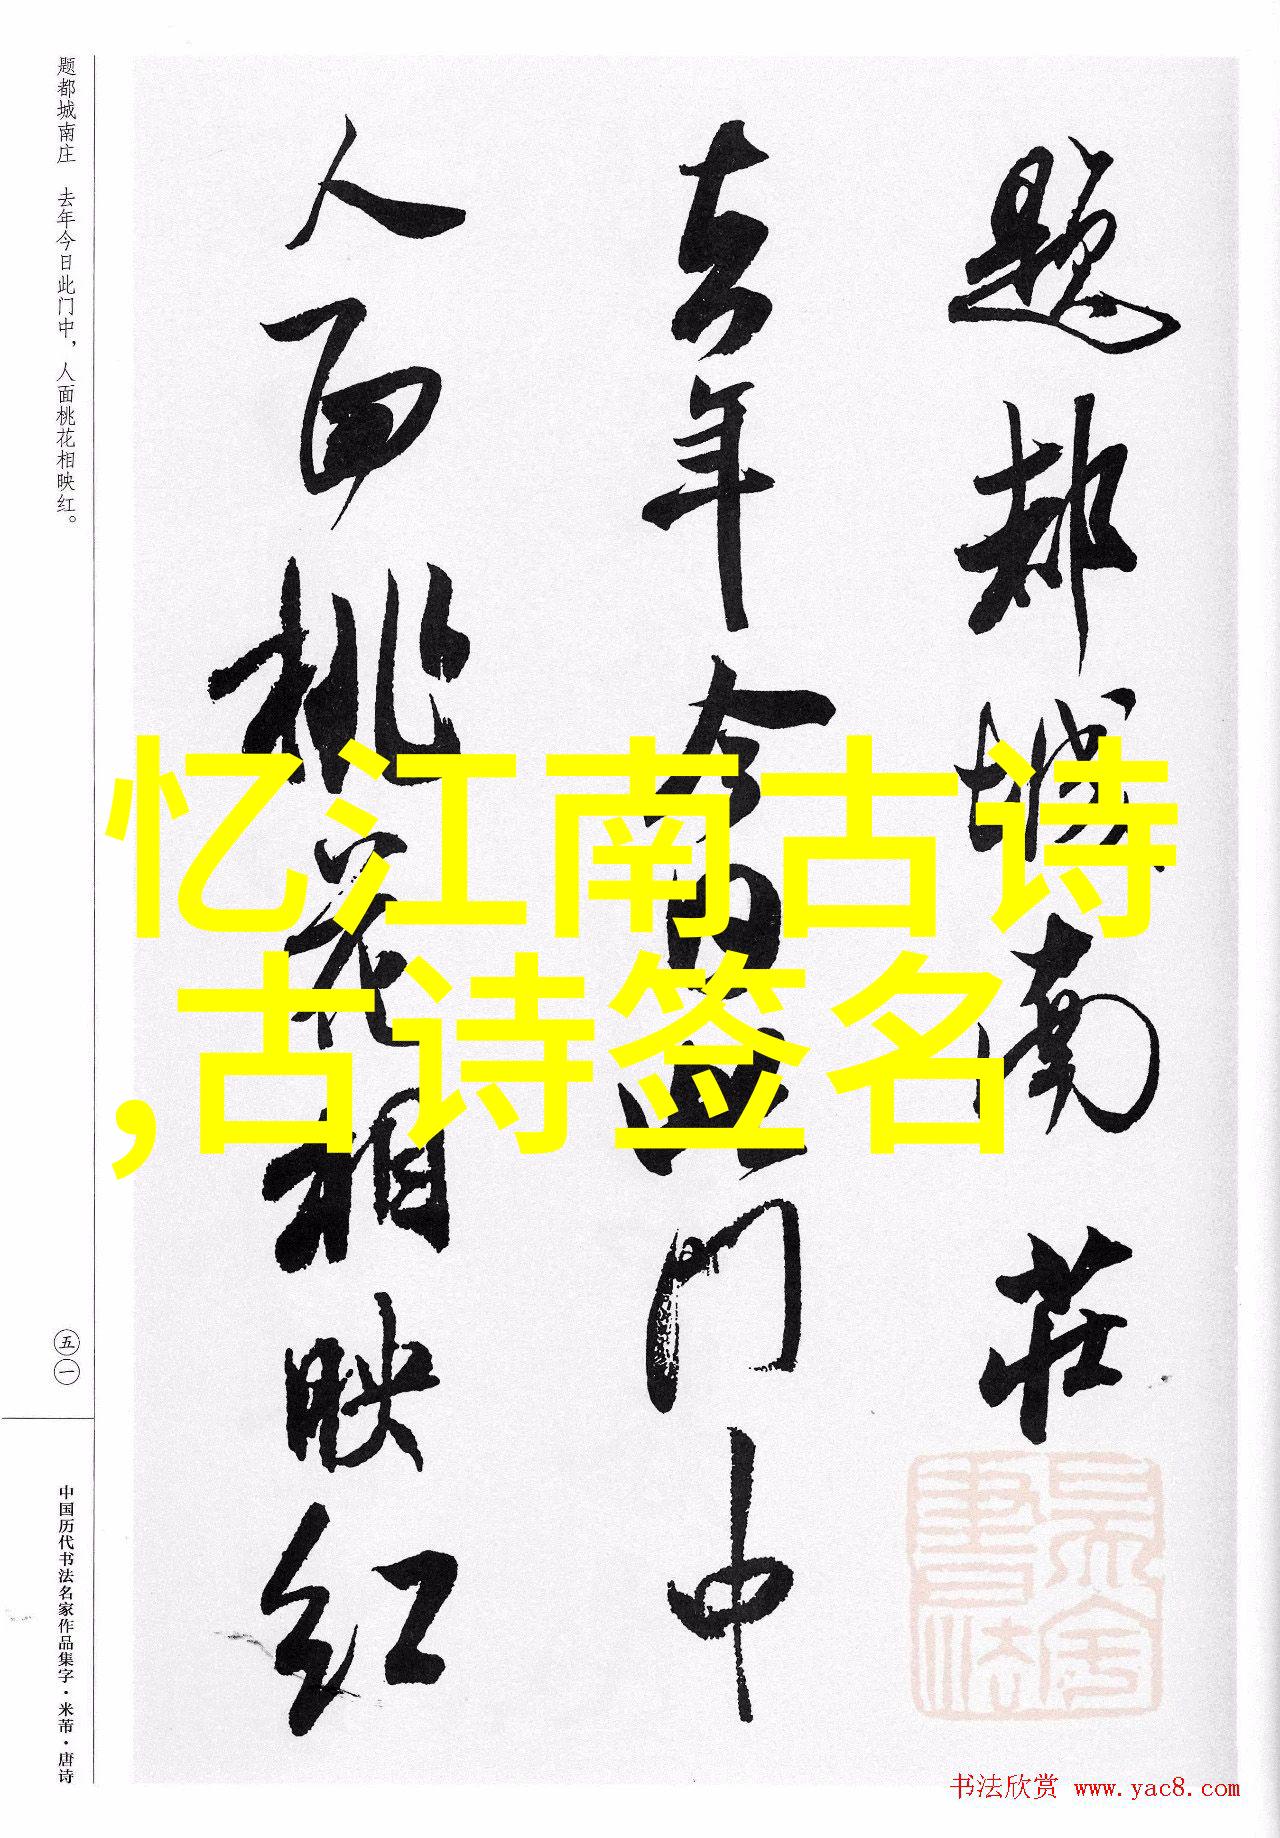 题都城南庄　去年今日此门中，人面桃花相映红。
題都城南莊
去年今日此門中
人面桃花相映紅
忆江南古诗
,古诗签名
五一
中国历代书法名家作品集字·米芾·唐诗
书法欣赏 www.yac8.com